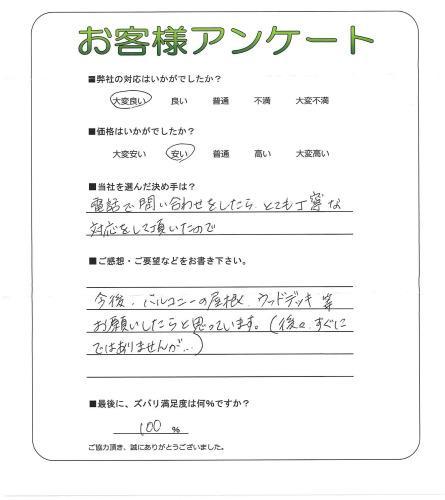 お客様アンケート
■弊社の対応はいかがでしたか?
大変良い 良い 普通 不満 大変不満
■価格はいかがでしたか?
大変安い 安い 普通 高い 大変高い
■当社を選んだ決め手は?
電話で問い合わせをしたら、とても丁寧な
対応をして頂いたので
■ご感想・ご要望などをお書き下さい。
今後、バルコニーの屋根、ウッドデッキ等
お願いしたらと思っています。(後々、すぐに
ではありませんが…)
■最後に、ズバリ満足度は何%ですか?
100 %
ご協力頂き、誠にありがとうございました。